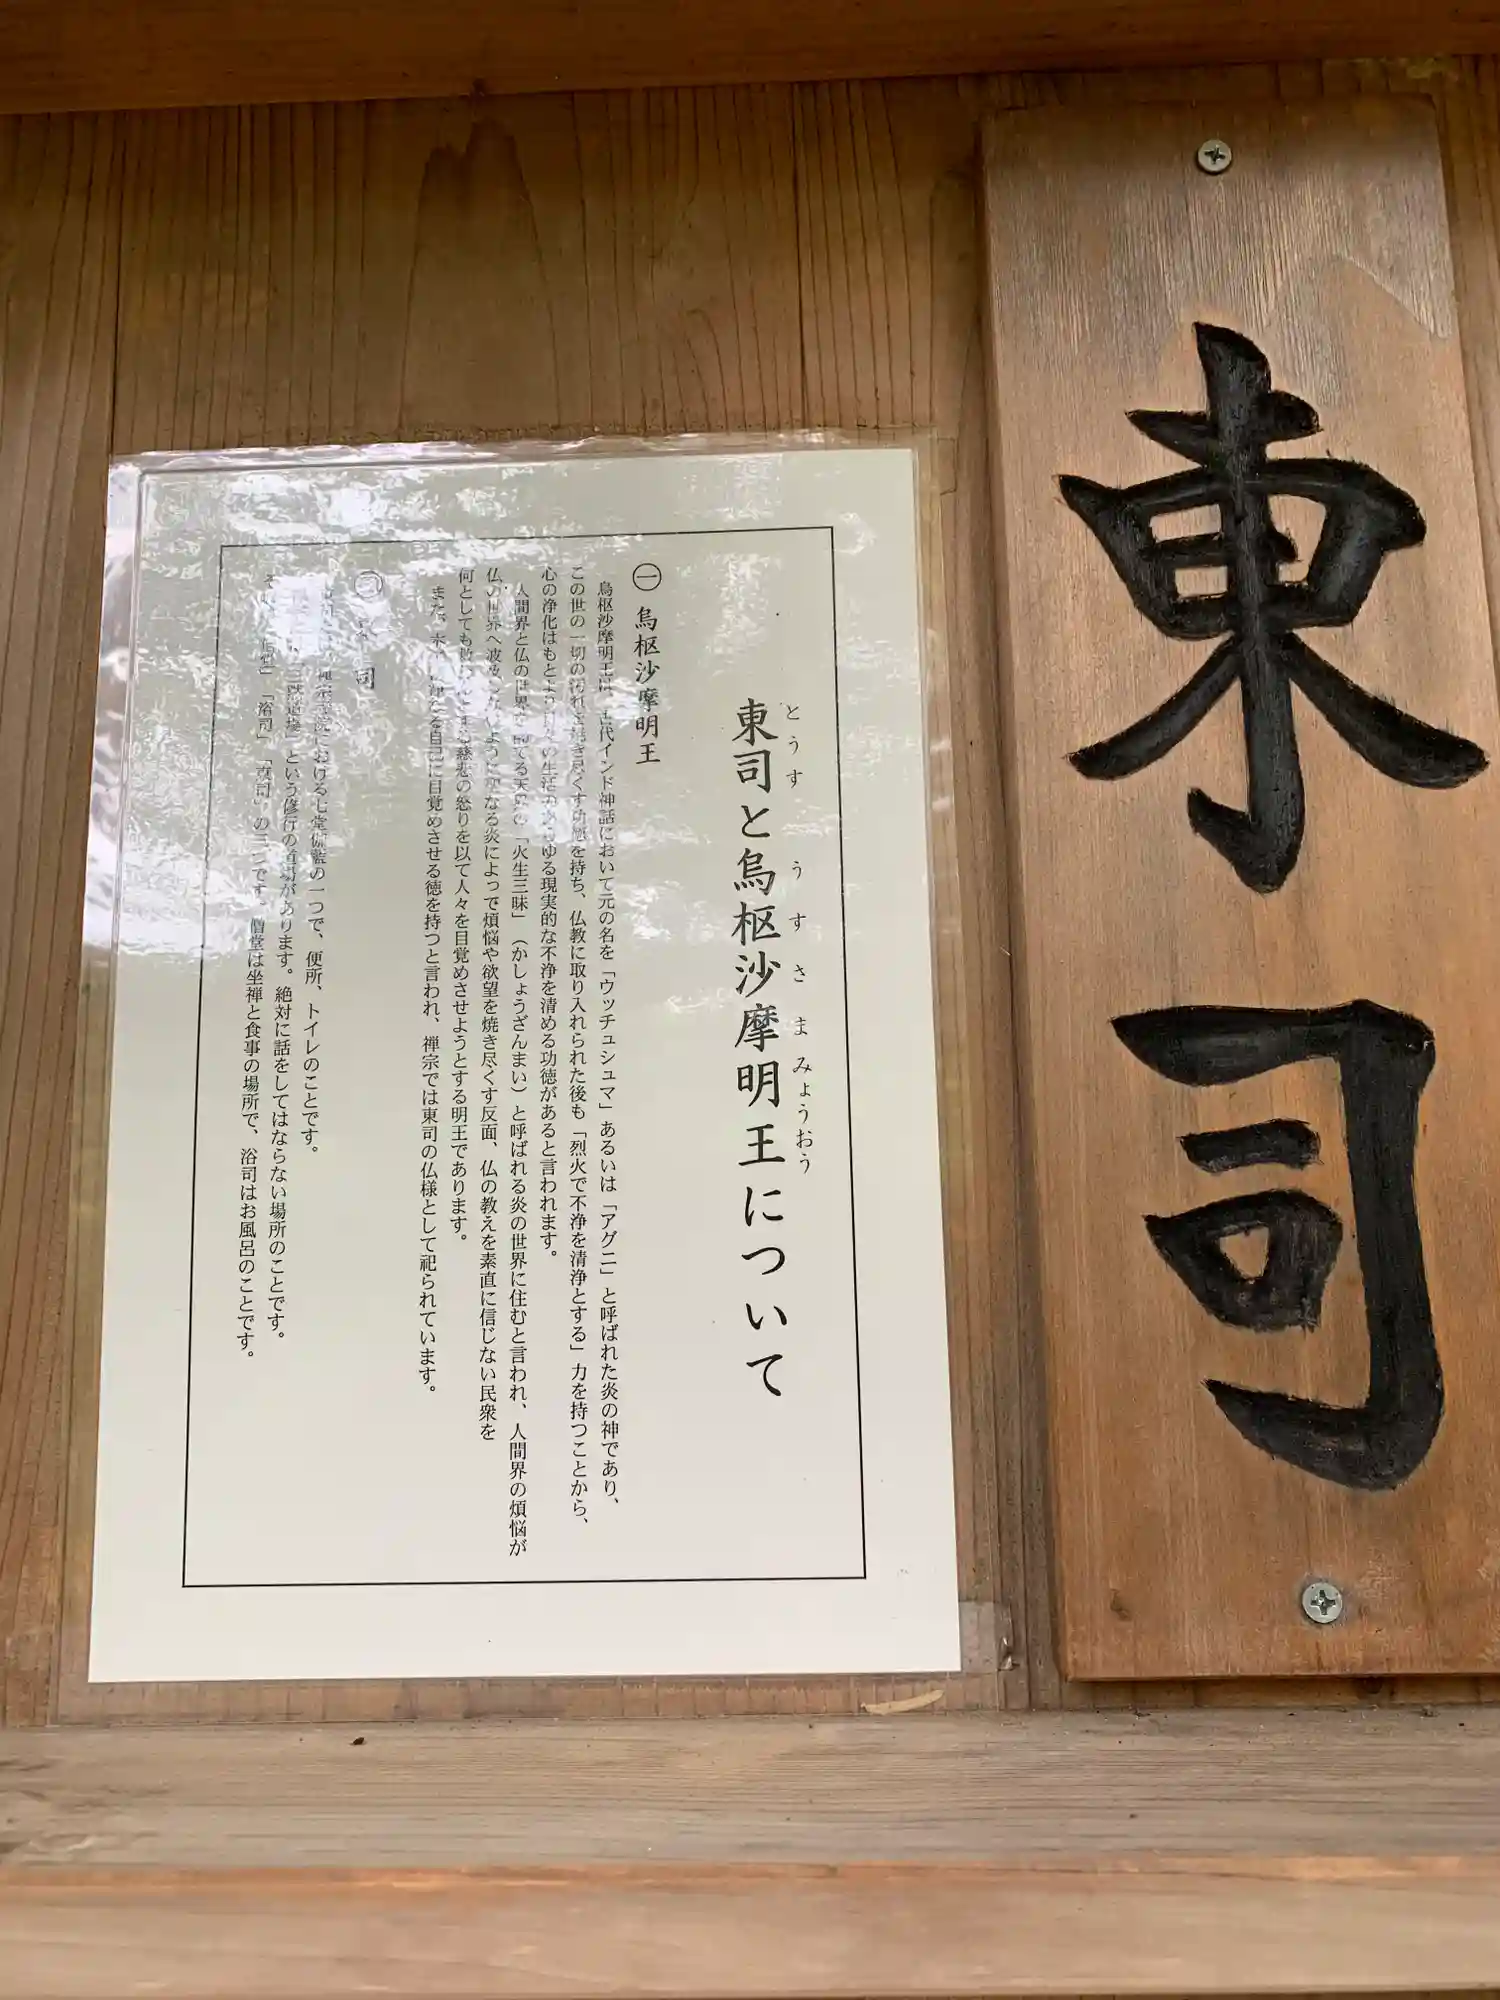 東司
とうす うすさまみょうおう
東司と烏枢沙摩明王について
㊀ 烏枢沙摩明王
烏枢沙摩明王は、古代インド神話において元の名を「ウッチュシュマ」あるいは「アグニ」と呼ばれた炎の神であり、
この世の一切の汚れを焼き尽くす功徳を持ち、仏教に取り入れられた後も「烈火で不浄を清浄とする」力を持つことから、
心の浄化はもとより日々の生活のあらゆる現実的な不浄を清める功徳があると言われます。
人間界と仏の世界を隔てる天界の「火生三昧」(かしょうざんまい)と呼ばれる炎の世界に住むと言われ、人間界の煩悩が
仏の世界へ波及しないように聖なる炎によって煩悩や欲望を焼き尽くす反面、仏の教えを素直に信じない民衆を
何としても救わんとする慈悲の怒りを以て人々を目覚めさせようとする明王であります。
また、本来 なる自己に目覚めさせる徳を持つと言われ、禅宗では東司の仏様として祀られています。
㊁ 東司
禅宗寺院における七堂伽藍の一つで、便所、トイレのことです。
「三黙道場」という修行の道場があります。絶対に話をしてはならない場所のことです。
「浴司」「東司」の三つです。僧堂は坐禅と食事の場所で、浴司はお風呂のことです。